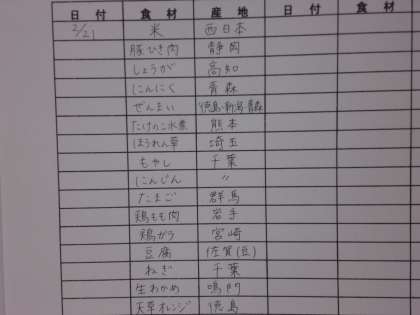 日付 食材 産地 日付 食材
2/21 米 西日本
豚ひき肉 静岡
しょうが 高知
にんにく 青森
ぜんまい 徳島・新潟・青森
たけのこ水煮 熊本
ほうれん草 埼玉
もやし 千葉
にんじん 〃
たまご 群馬
鶏もも肉 岩手
鶏ガラ 宮崎
豆腐 佐賀(豆)
ねぎ 千葉
生わかめ 鳴門
天草オレンジ 徳島